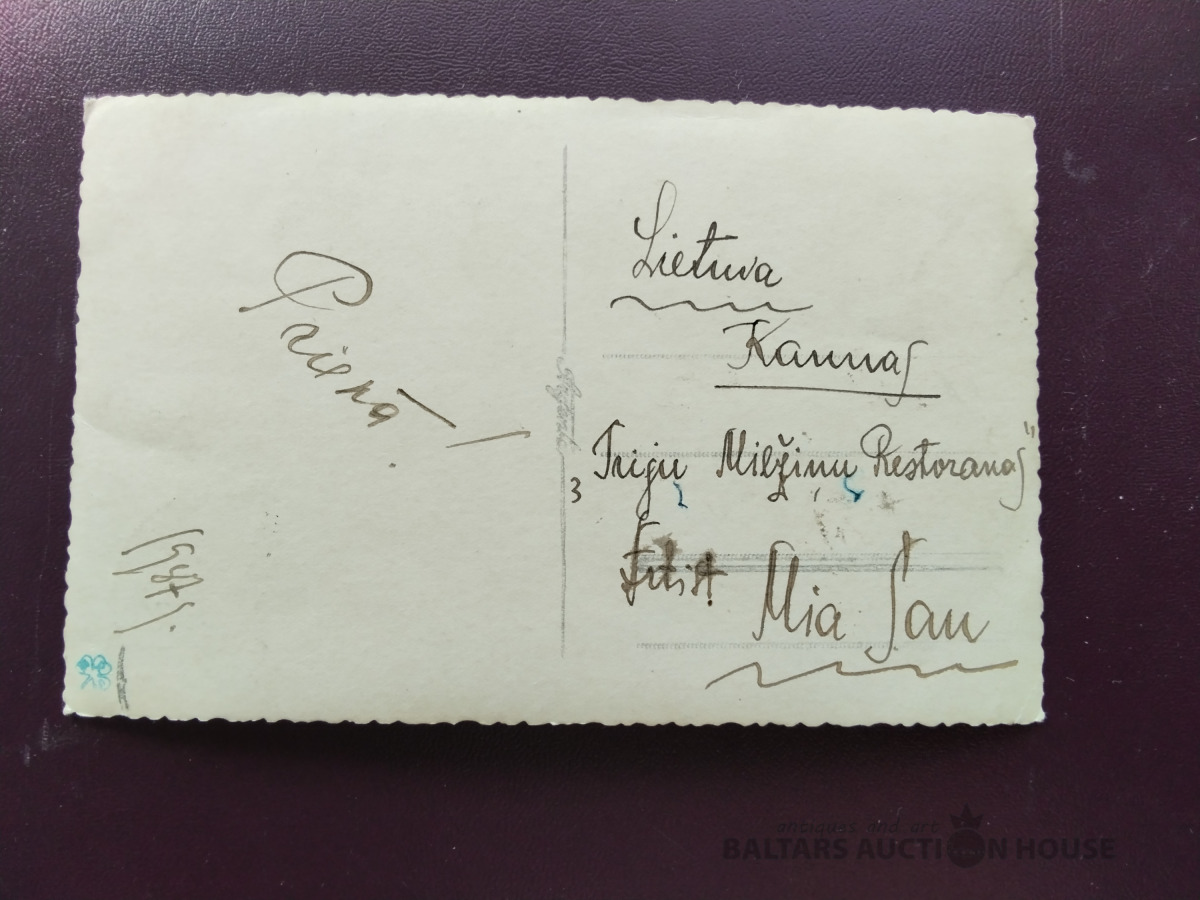 Priekā!
Lietuva
Kaunas
3 Trijų Milžinų Restoranas"
Mia Šau
antiques and art
BALTARS AUCTION HOUSE